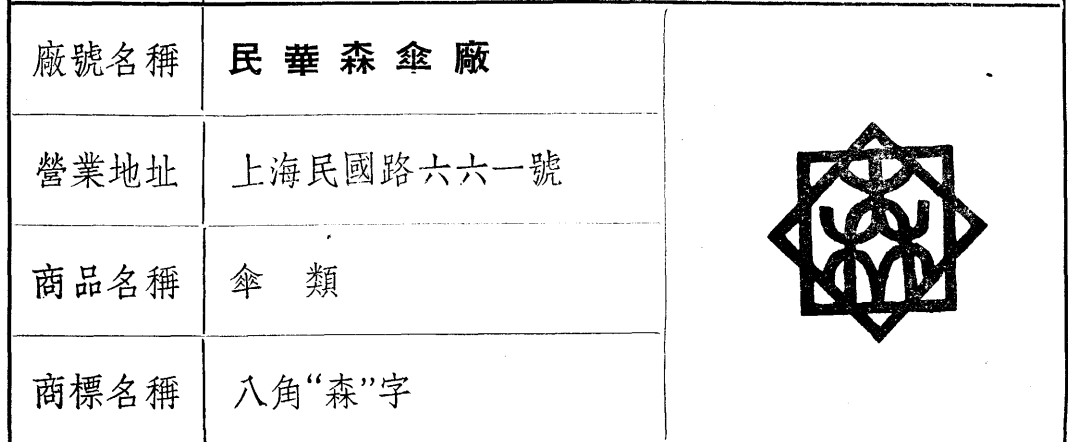 廠號名稱 民華森傘廠
營業地址 上海民國路六六一號
商品名稱 傘 類
商標名稱 八角“森”字
森